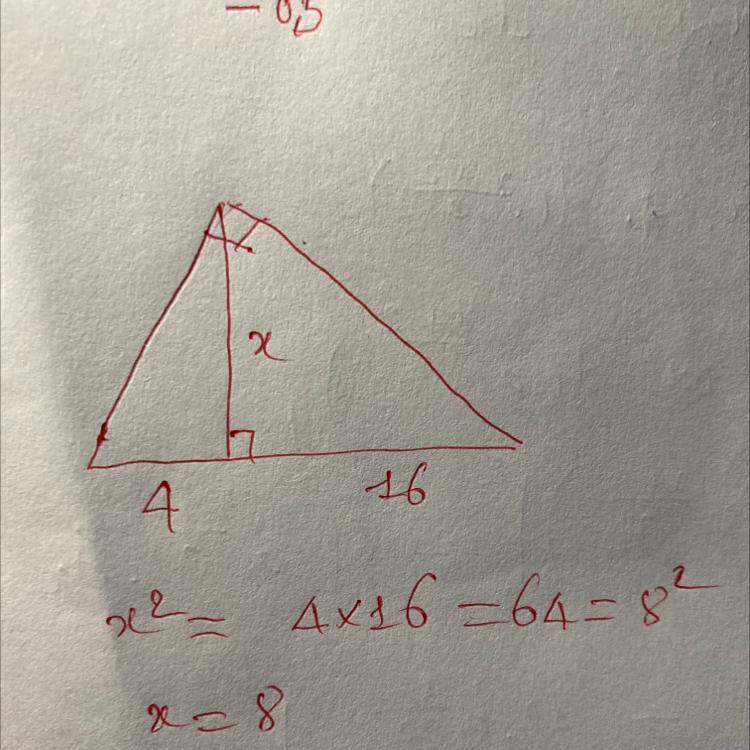 - 0,5
x
4
16
x² = 4×16 = 64 = 8²
x = 8